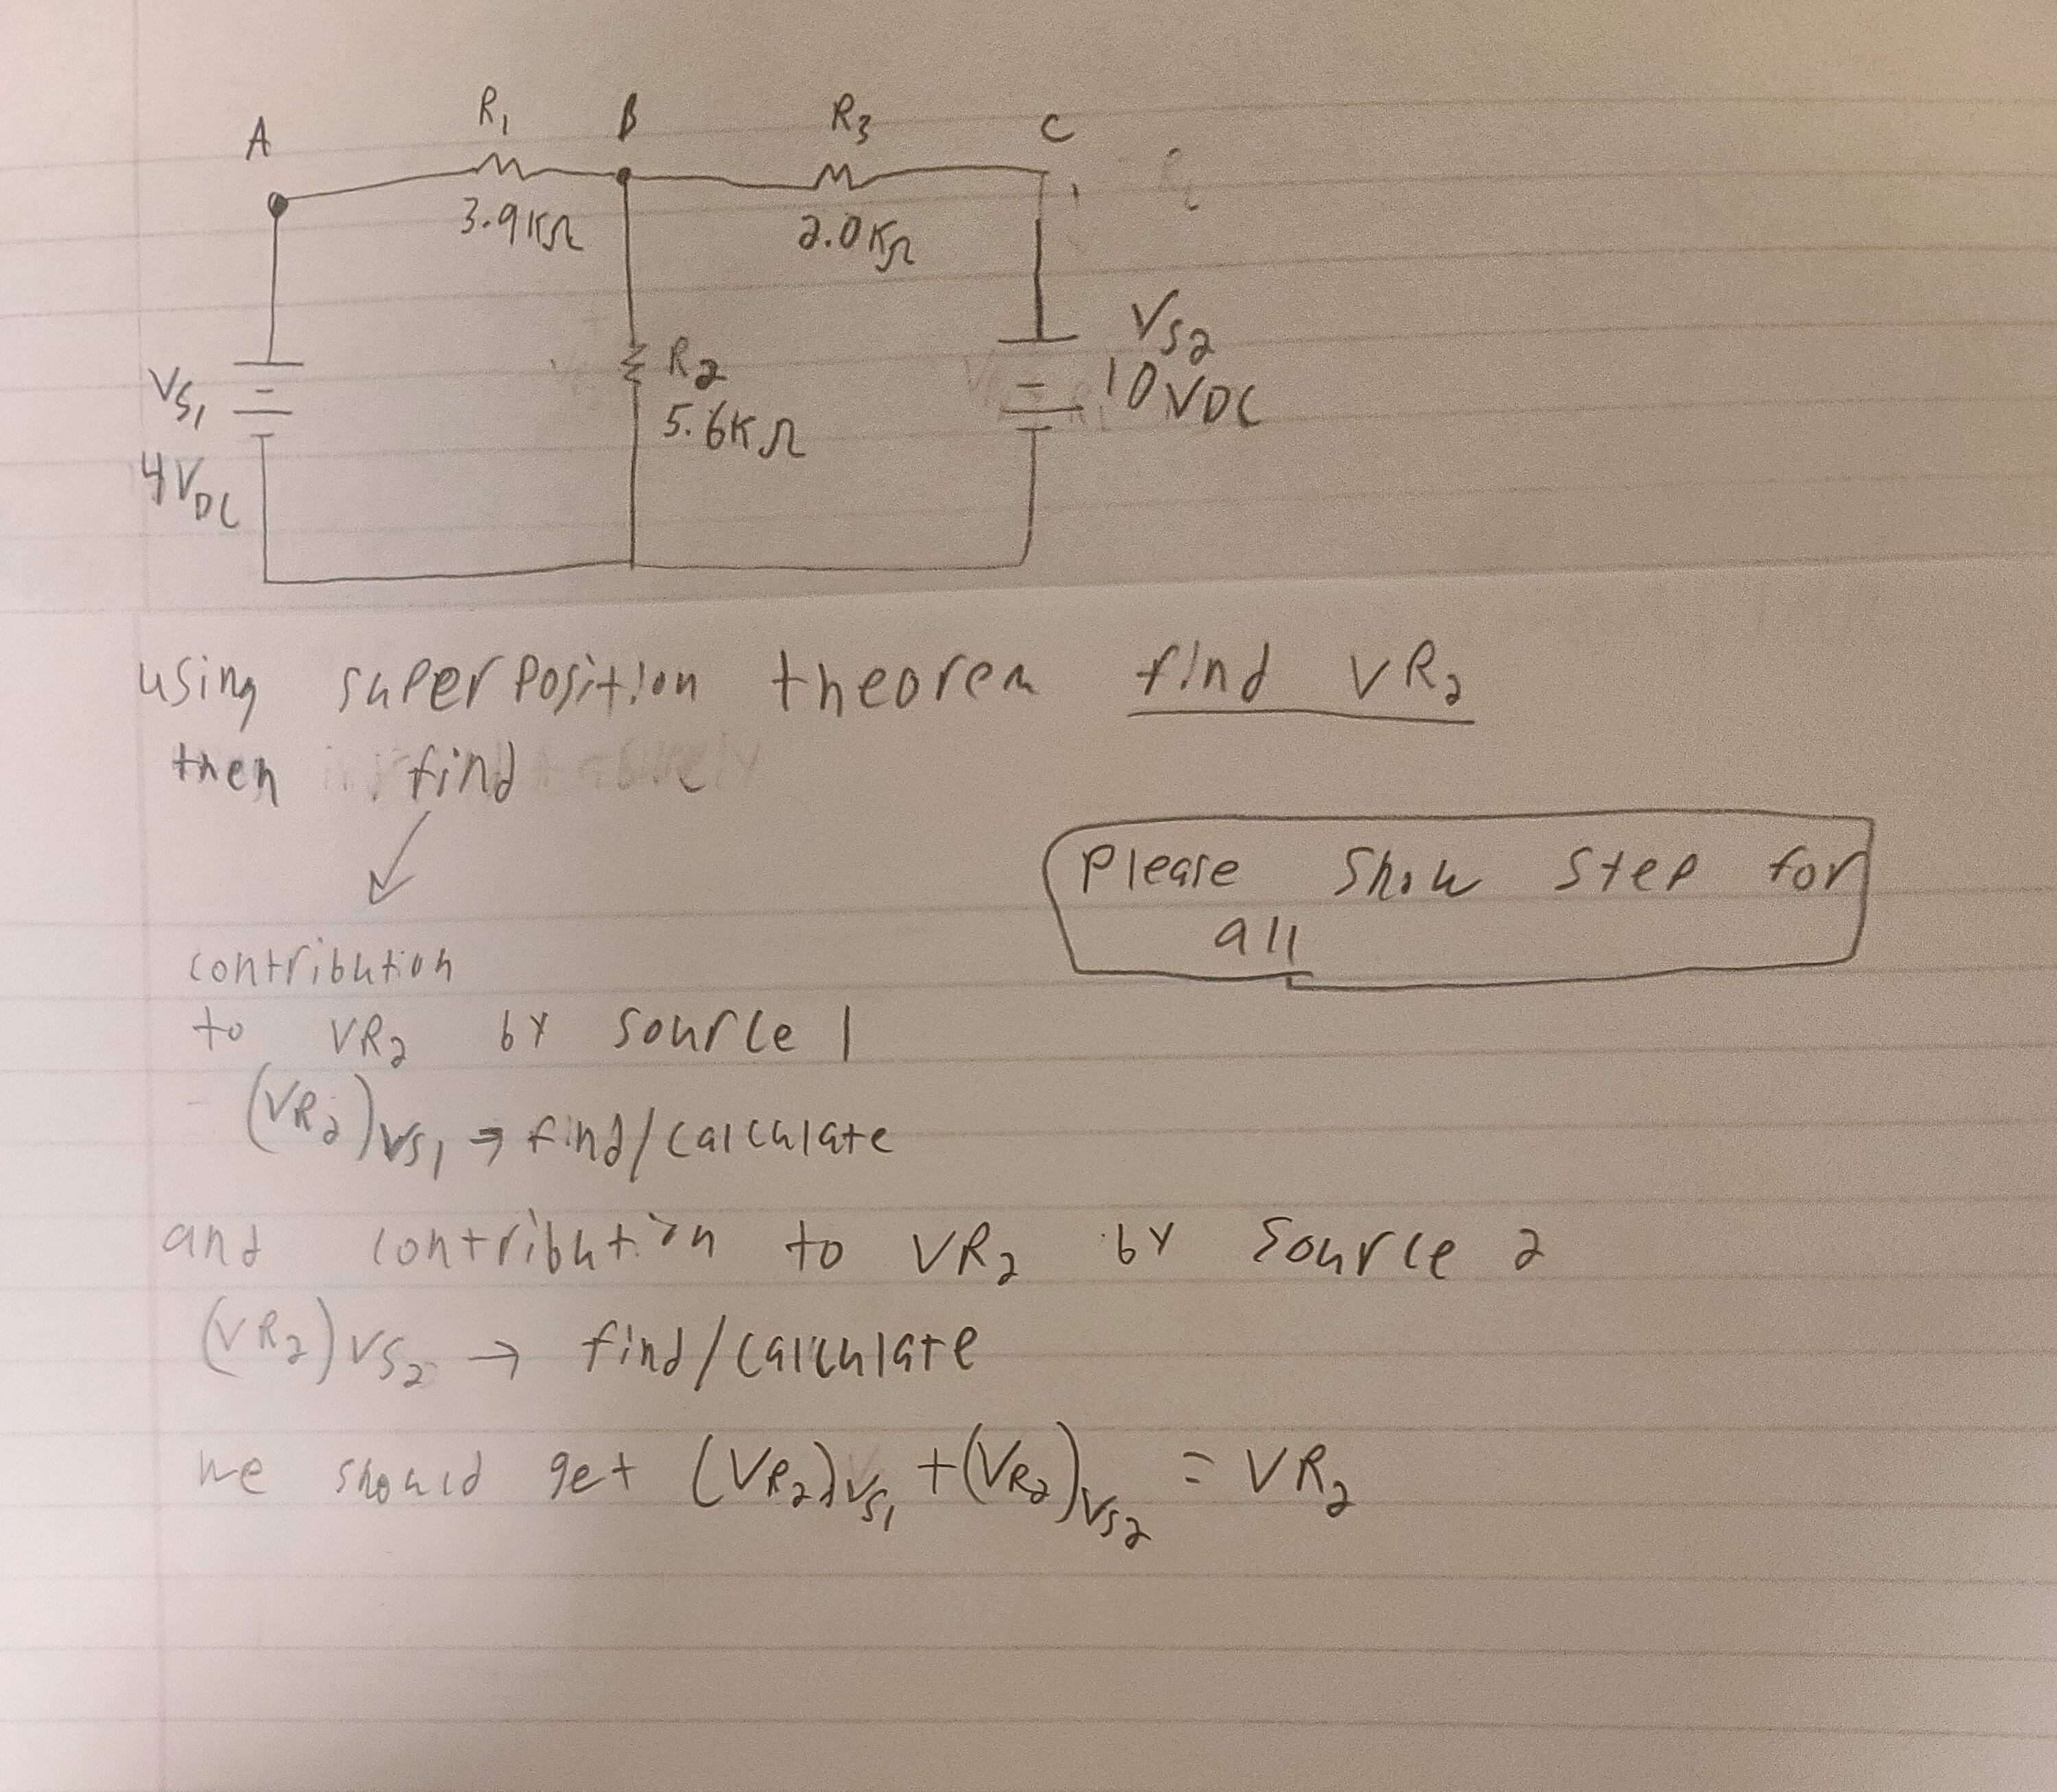 A R₁ B R₃ C
3.9KΩ 2.0KΩ
VS₁
4VDC
R₂
5.6KΩ
VS₂
10VDC
using superposition theorem find VR₂
then find
Please Show Step for
all
contribution
to VR₂ by source 1
(VR₂)VS₁ → find/calculate
and contribution to VR₂ by Source 2
(VR₂)VS₂ → find/calculate
we should get (VR₂)VS₁ + (VR₂)VS₂ = VR₂